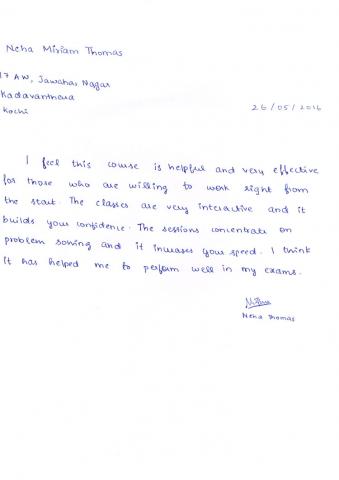 Neha Miriam Thomas
17 AW, Jawahar Nagar
Kadavanthara
Kochi
26/05/2016
I feel this course is helpful and very effective
for those who are willing to work right from
the start. The classes are very interactive and it
builds your confidence. The sessions concentrate on
problem soving and it increases your speed. I think
it has helped me to perform well in my exams.
Neha Thomas